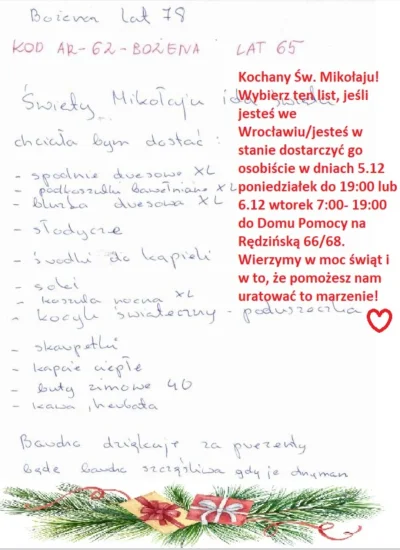 Bożena lat 78
KOD AR-62-BOŻENA LAT 65
Kochany Św. Mikołaju!
Wybierz ten list, jeśli
jesteś we
Wrocławiu/jesteś w
stanie dostarczyć go
osobiście w dniach 5.12
poniedziałek do 19:00 lub
6.12 wtorek 7:00- 19:00
do Domu Pomocy na
Rędzińską 66/68.
Wierzymy w moc świąt i
w to, że pomożesz nam
uratować to marzenie!
Święty Mikołaju idą
chciała bym dostać :
- spodnie dresowe XL
- podkoszulki bawełniane XL
- bluzka dresowa XL
- słodycze
- środki do kąpieli
- soki
- koszula nocna XL
- kocyk świąteczny - poduszeczka
- skarpetki
- kapcie ciepłe
- buty zimowe 40
- kawa, herbata
Bardzo dziękuję za prezenty
będę bardzo szczęśliwa gdy je